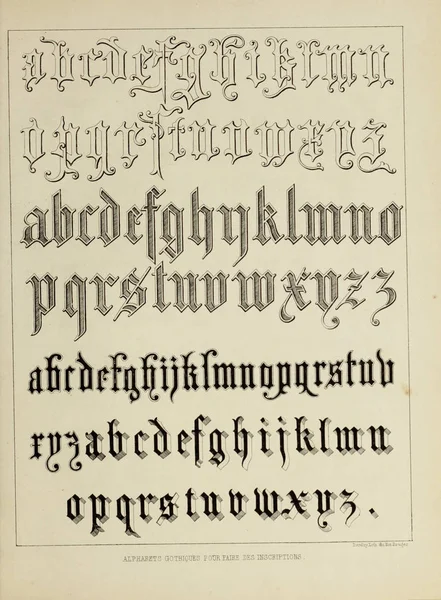 abcdefghiklmn
opqrſtuvwxyz
abcdefghijklmno
pqrstuvwxyzz
abcdefghijklmnopqrstuv
xyzabcdefghijklmn
opqrstuvwxyz.
ALPHABETS GOTHIQUES POUR FAIRE DES INSCRIPTIONS.